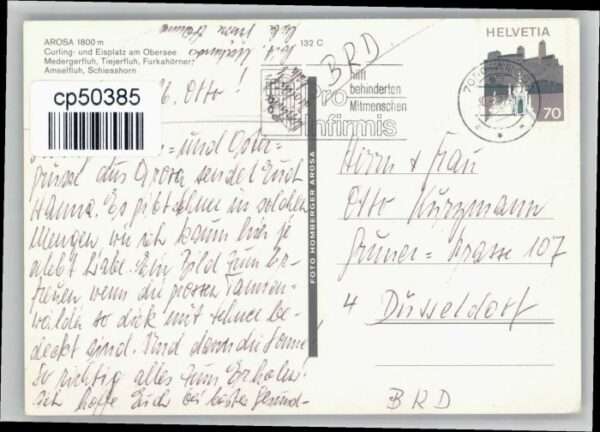 AROSA 1800 m
Curling- und Eisplatz am Obersee
Medergerfluh, Tiejerfluh, Furkahörner,
Amselfluh, Schiesshorn
132 C
BRD
HELVETIA
70
Pro
Infirmis
behinderten
Mitmenschen
cp50385
Otto!
und Oster-
grüsse aus Arosa sendet Euch
Hanna. Es gibt Schnee in solchen
Mengen wie ich kaum hier je
erlebt habe. Ein Bild zum be-
freuen wenn die grossen Tannen-
wälder so dick mit Schnee be-
deckt sind. Und dann die Sonne!
So richtig alles zum Erholen!
Ich hoffe Euch bei bester Gesund-
FOTO HOMBERGER AROSA
Herrn & Frau
Otto Kurzmann
Gruner-strasse 107
4 Düsseldorf
BRD